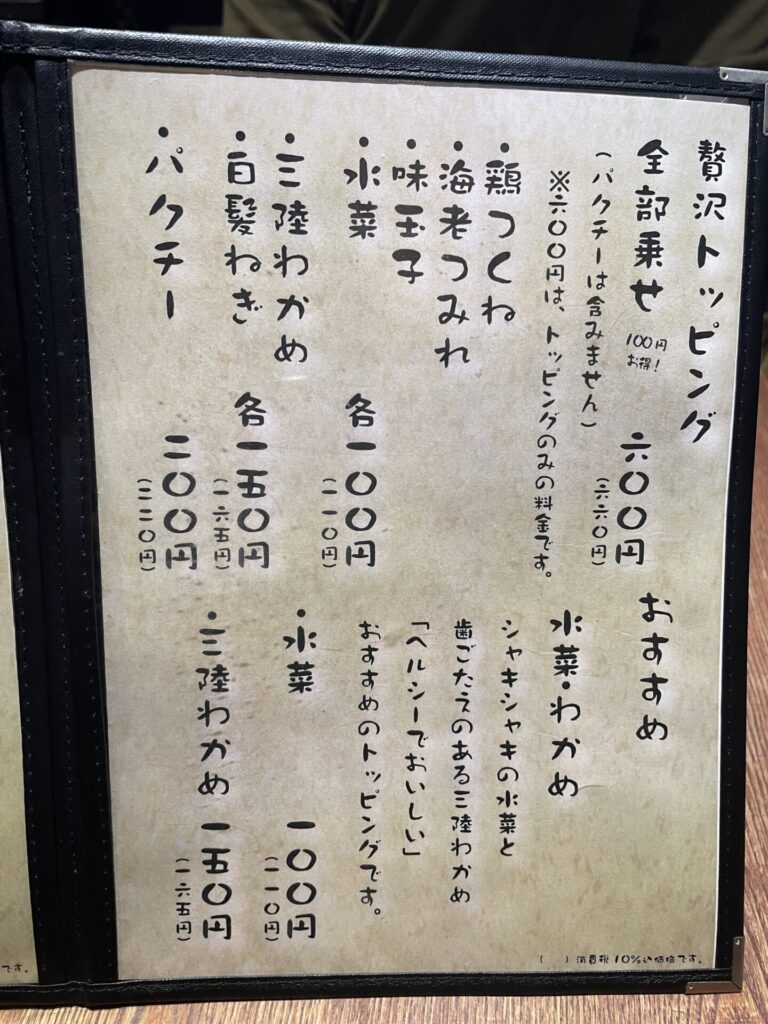 贅沢トッピング
全部乗せ 100円お得! 六〇〇円
(六六〇円)
(パクチーは含みません)
※六〇〇円は、トッピングのみの料金です。
・鶏つくね
・海老つみれ
・味玉子
・水菜 各一〇〇円
(一一〇円)
・三陸わかめ
・白髪ねぎ 各一五〇円
(一六五円)
・パクチー 二〇〇円
(二二〇円)
おすすめ
水菜・わかめ
シャキシャキの水菜と
歯ごたえのある三陸わかめ
「ヘルシーでおいしい」
おすすめのトッピングです。
・水菜 一〇〇円
(一一〇円)
・三陸わかめ 一五〇円
(一六五円)
( )消費税10%込価格です。
です。